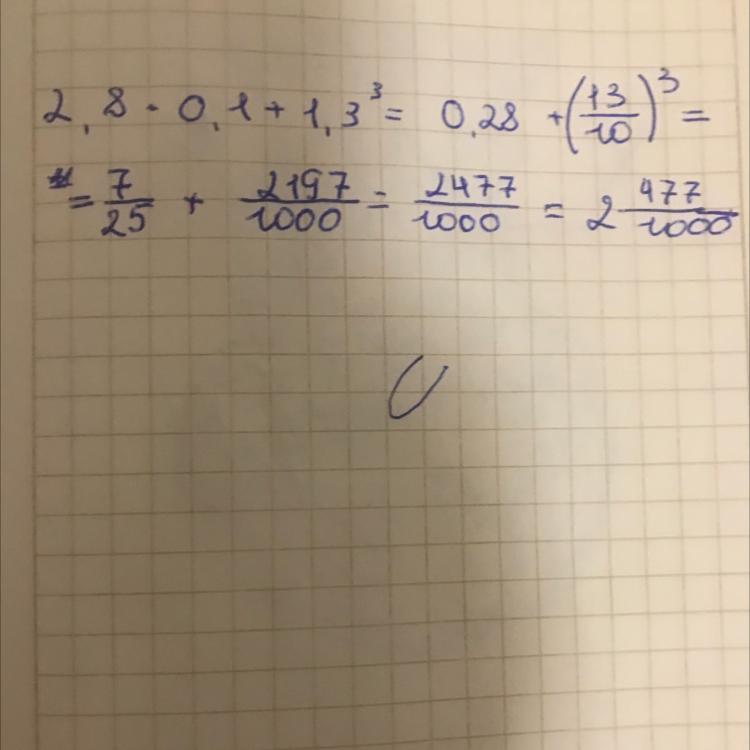 2,8 · 0,1 + 1,3³ = 0,28 + (13/10)³ =
= 7/25 + 2197/1000 = 2477/1000 = 2 477/1000